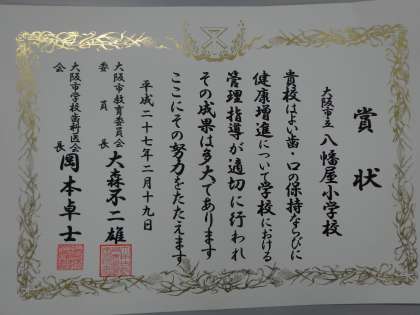 賞状
大阪市立 八幡屋小学校
貴校はよい歯・口の保持ならびに
健康増進について学校における
管理指導が適切に行われ
その成果は多大であります
ここにその努力をたたえます
平成二十七年二月十九日
大阪市教育委員会
委員長 大森不二雄
大阪市学校歯科医会
会長 岡本卓士